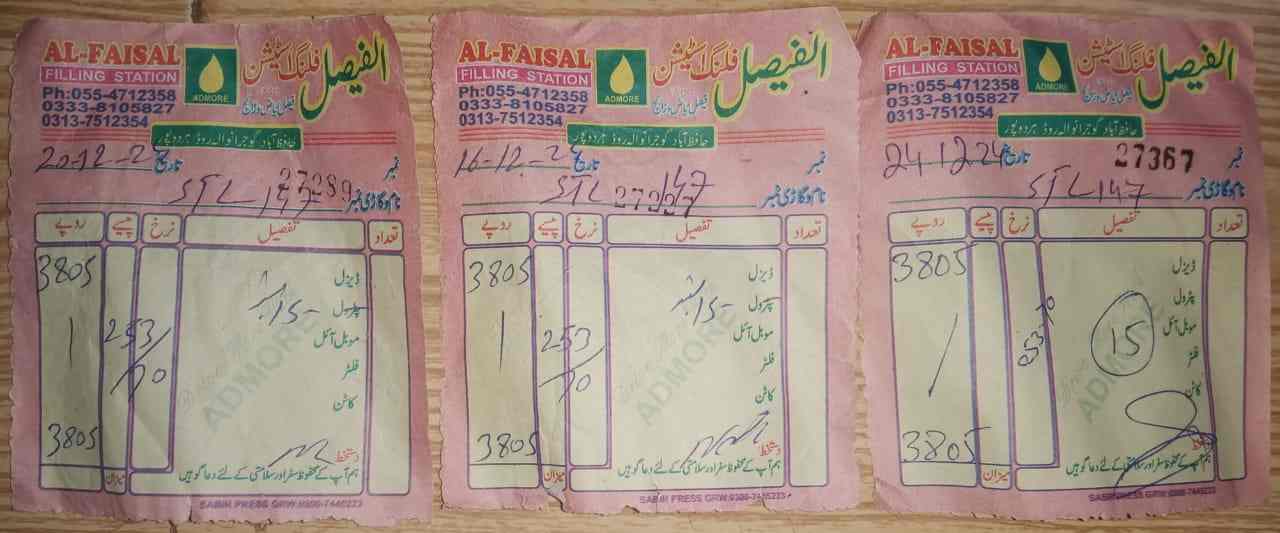 AL-FAISAL
FILLING STATION
Ph:055-4712358
0333-8105827
0313-7512354
ADMORE
الفیصل فلنگ اسٹیشن
حافظ آباد گوجرانوالہ روڈ ہردوپور
نمبر تاریخ 20-12-2
27289
نام و گاڑی نمبر STL 147
تعداد تفصیل نرخ پیسے روپے
ڈیزل 3805
پٹرول 15-
موبل آئل 253/70
فلٹر
کاٹن
دستخط
3805
ہم آپ کے محفوظ سفر اور سلامتی کے لئے دعا گو ہیں
میزان
SABIH PRESS GRW:0300-7445223
AL-FAISAL
FILLING STATION
Ph:055-4712358
0333-8105827
0313-7512354
ADMORE
الفیصل فلنگ اسٹیشن
حافظ آباد گوجرانوالہ روڈ ہردوپور
نمبر تاریخ 16-12-2
نام و گاڑی نمبر STL 147
27227
تعداد تفصیل نرخ پیسے روپے
ڈیزل 3805
پٹرول 15-
موبل آئل 253/70
فلٹر
کاٹن
دستخط
3805
ہم آپ کے محفوظ سفر اور سلامتی کے لئے دعا گو ہیں
میزان
SABIH PRESS GRW:0300-7445223
AL-FAISAL
FILLING STATION
Ph:055-4712358
0333-8105827
0313-7512354
ADMORE
الفیصل فلنگ اسٹیشن
حافظ آباد گوجرانوالہ روڈ ہردوپور
نمبر 27367 تاریخ 24 12 24
نام و گاڑی نمبر STL 147
تعداد تفصیل نرخ پیسے روپے
ڈیزل 3805
پٹرول
موبل آئل 15 253-70
فلٹر
کاٹن
دستخط
3805
ہم آپ کے محفوظ سفر اور سلامتی کے لئے دعا گو ہیں
میزان
SABIH PRESS GRW:0300-7445223